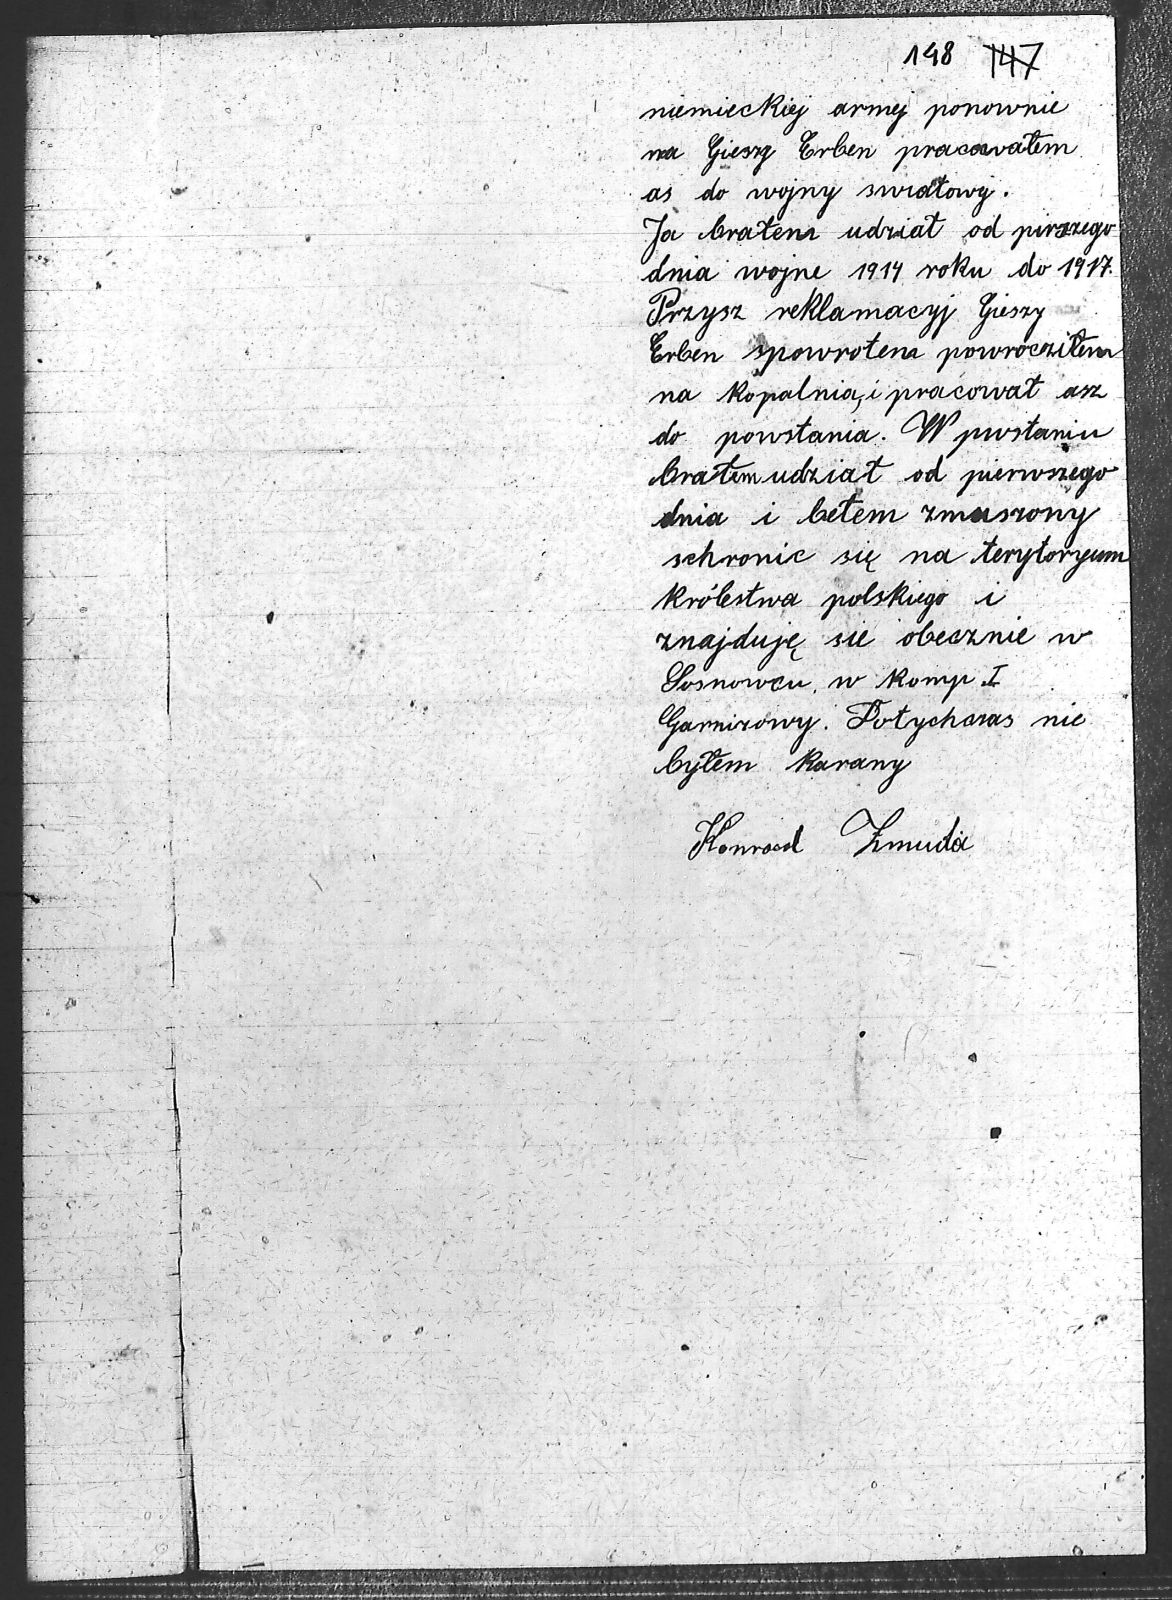 148 147
niemieckiej armej ponownie
na Gieszy Erben pracowałem
as do wojny swiatowy.
Ja brałem udział od pirszego
dnia wojne 1914 roku do 1917.
Przysz reklamacyj Gieszy
Erben spowrotem powrócziłem
na kopalnią, i pracował asz
do powstania. W pwstaniu
brałem udział od pierwszego
dnia i bełem zmuszony
schronic się na terytoryum
królestwa polskiego i
znajduję sie obecznie w
Sosnowcu w Komp I
Garnizowy. Dotychczas nie
byłem Karany
Konrad Zmuda